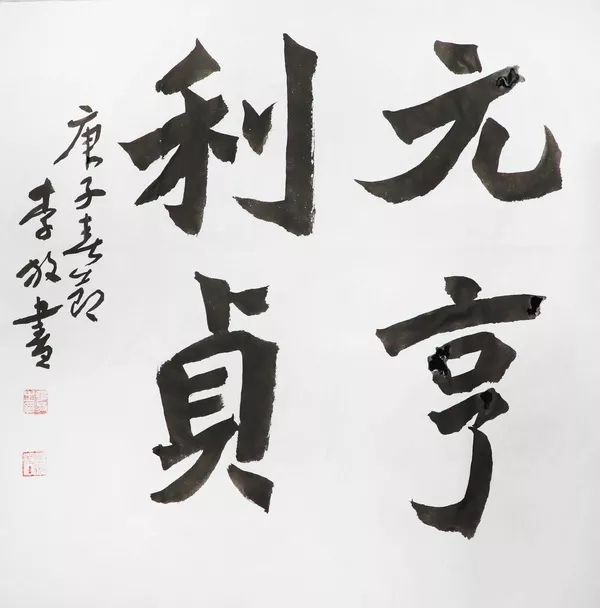 元亨
利貞
庚子春節
李放書